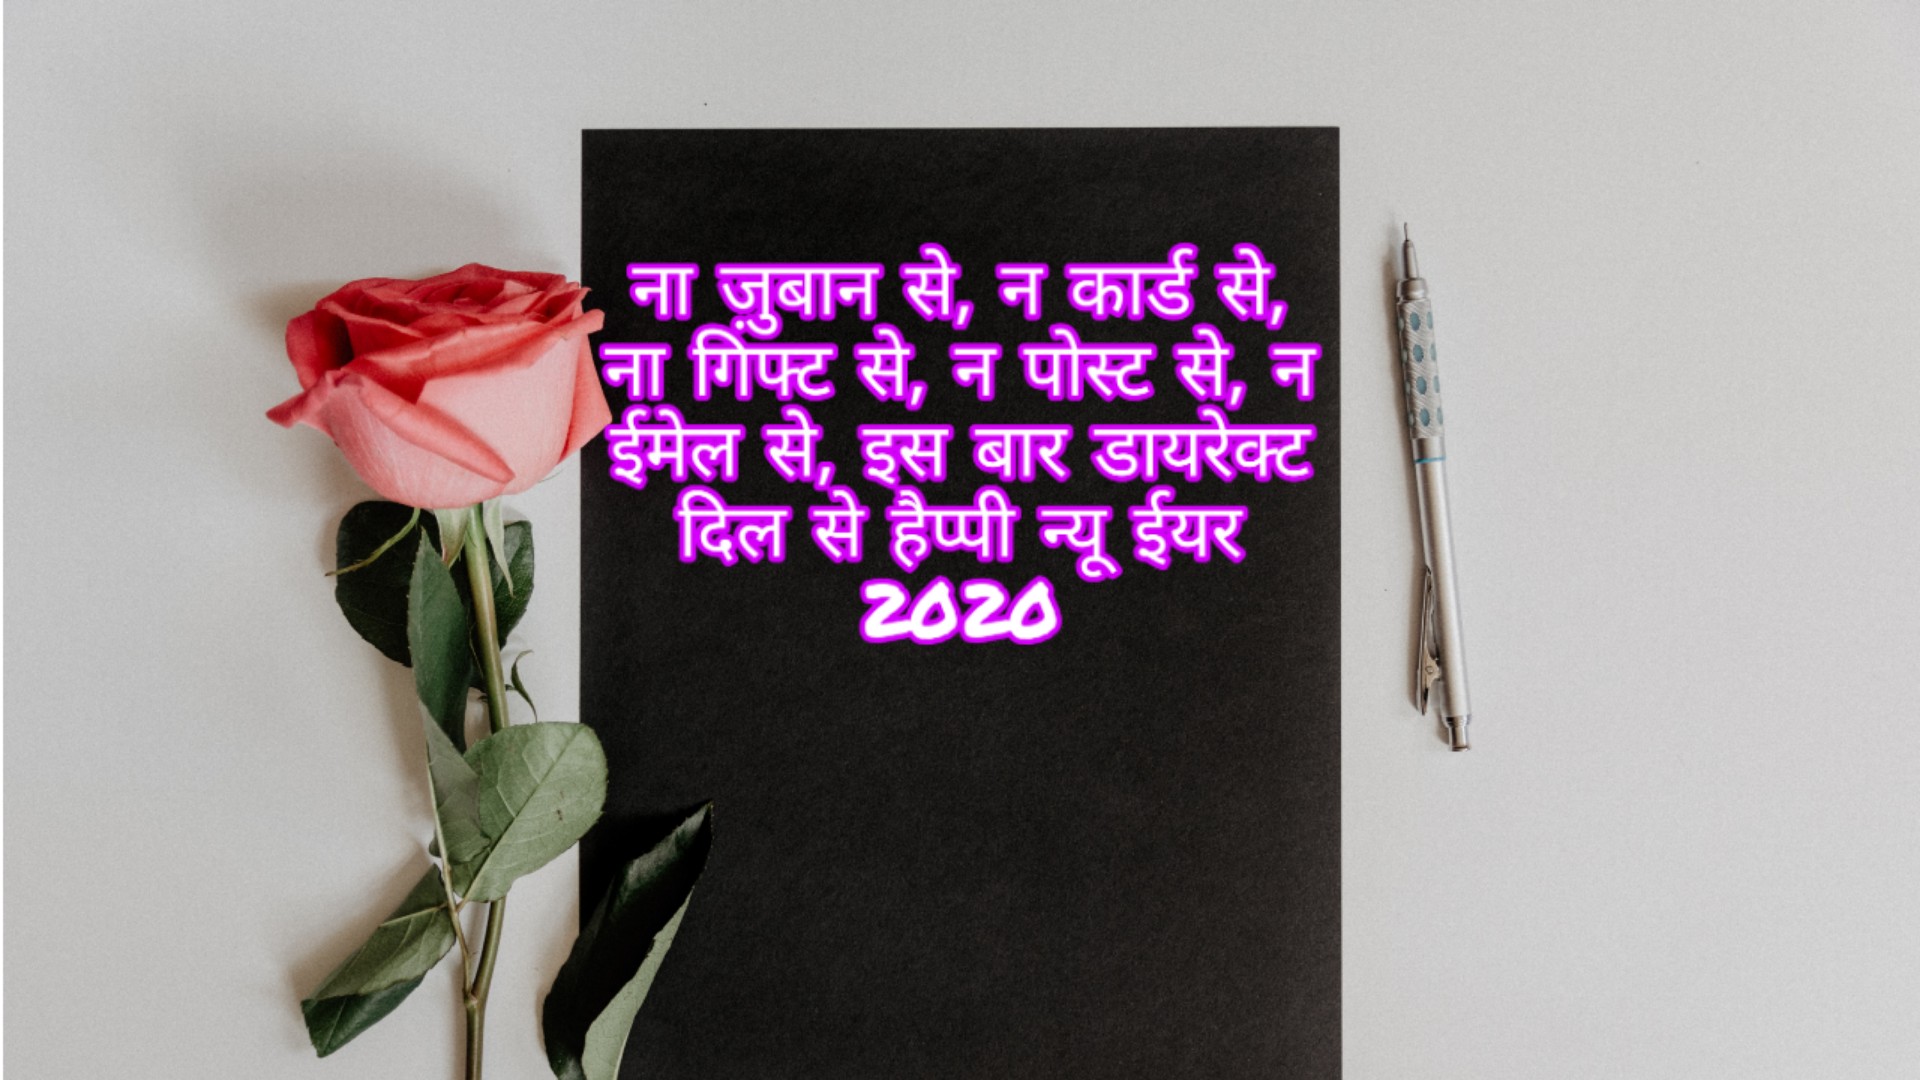 ना ज़ुबान से, न कार्ड से,
ना गिफ्ट से, न पोस्ट से, न
ईमेल से, इस बार डायरेक्ट
दिल से हैप्पी न्यू ईयर
2020